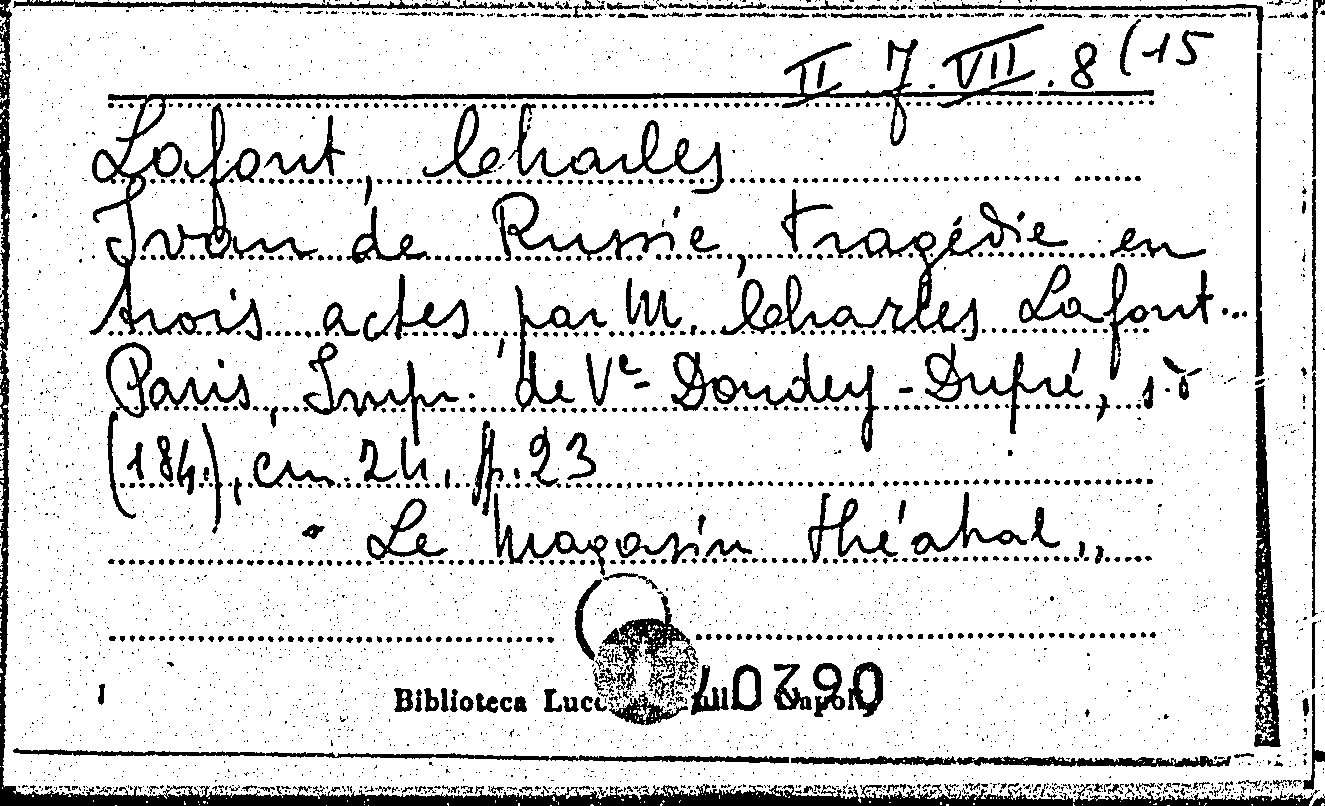 II 7. VII. 8 (15
Lafont, Charles
Ivan de Russie, tragédie en
trois actes, par M. Charles Lafont...
Paris, Impr. de Vᵉ Dondey-Dupré, s.d
(184.), cm. 24, p. 23
" Le Magasin théatral „
Biblioteca Napoli